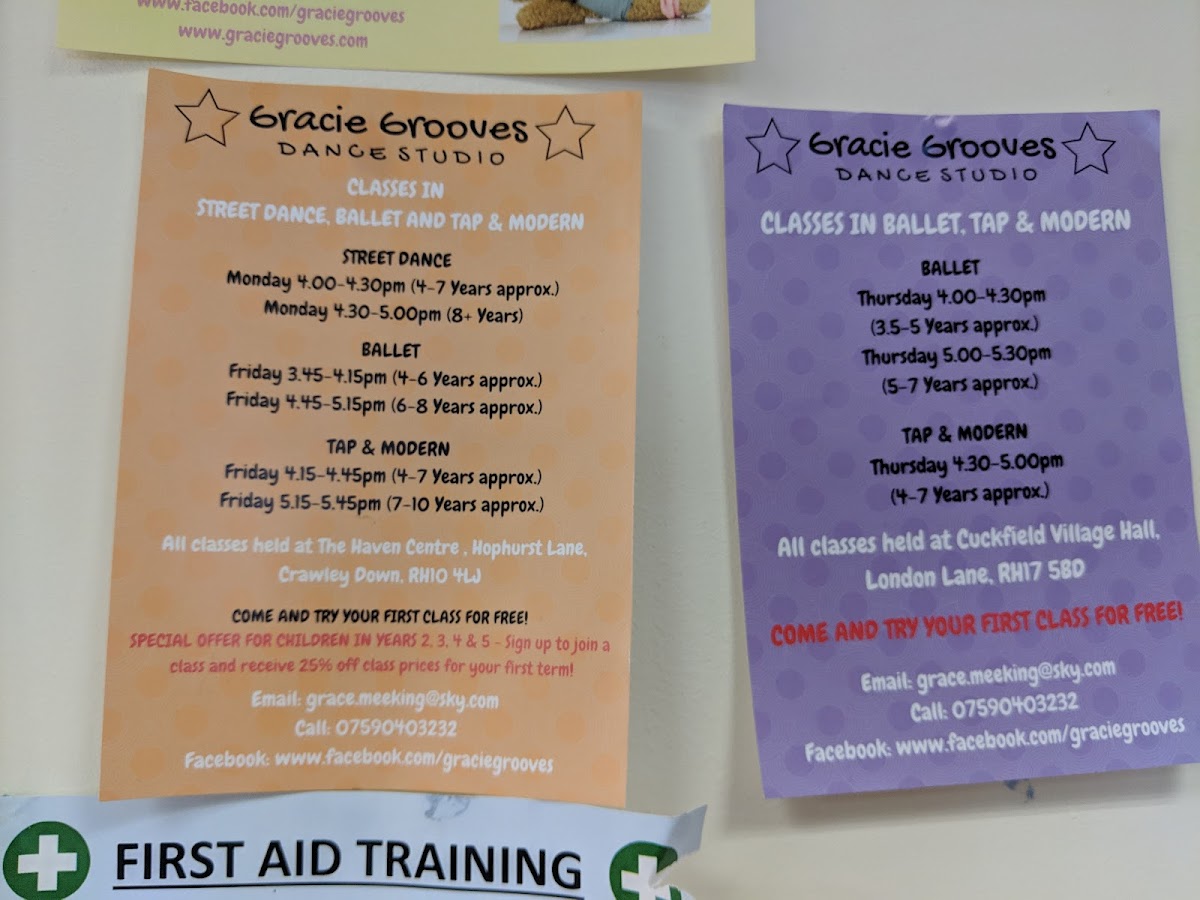 www.facebook.com/graciegrooves
www.graciegrooves.com
Gracie Grooves
DANCE STUDIO
CLASSES IN
STREET DANCE, BALLET AND TAP & MODERN
STREET DANCE
Monday 4.00-4.30pm (4-7 Years approx.)
Monday 4.30-5.00pm (8+ Years)
BALLET
Friday 3.45-4.15pm (4-6 Years approx.)
Friday 4.45-5.15pm (6-8 Years approx.)
TAP & MODERN
Friday 4.15-4.45pm (4-7 Years approx.)
Friday 5.15-5.45pm (7-10 Years approx.)
All classes held at The Haven Centre , Hophurst Lane,
Crawley Down, RH10 4LJ
COME AND TRY YOUR FIRST CLASS FOR FREE!
SPECIAL OFFER FOR CHILDREN IN YEARS 2, 3, 4 & 5 - Sign up to join a
class and receive 25% off class prices for your first term!
Email: grace.meeking@sky.com
Call: 07590403232
Facebook: www.facebook.com/graciegrooves
Gracie Grooves
DANCE STUDIO
CLASSES IN BALLET, TAP & MODERN
BALLET
Thursday 4.00-4.30pm
(3.5-5 Years approx.)
Thursday 5.00-5.30pm
(5-7 Years approx.)
TAP & MODERN
Thursday 4.30-5.00pm
(4-7 Years approx.)
All classes held at Cuckfield Village Hall,
London Lane, RH17 5BD
COME AND TRY YOUR FIRST CLASS FOR FREE!
Email: grace.meeking@sky.com
Call: 07590403232
Facebook: www.facebook.com/graciegrooves
FIRST AID TRAINING